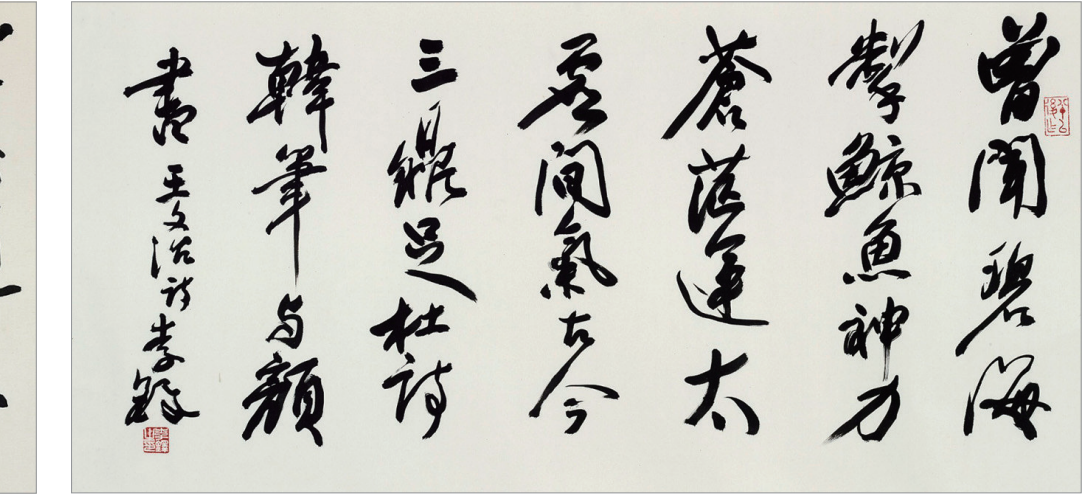 曾聞碧海
掣鯨魚神力
蒼茫運太
虛間氣古今
三鼎足杜詩
韓筆与顏
書 王文治詩 李鐸